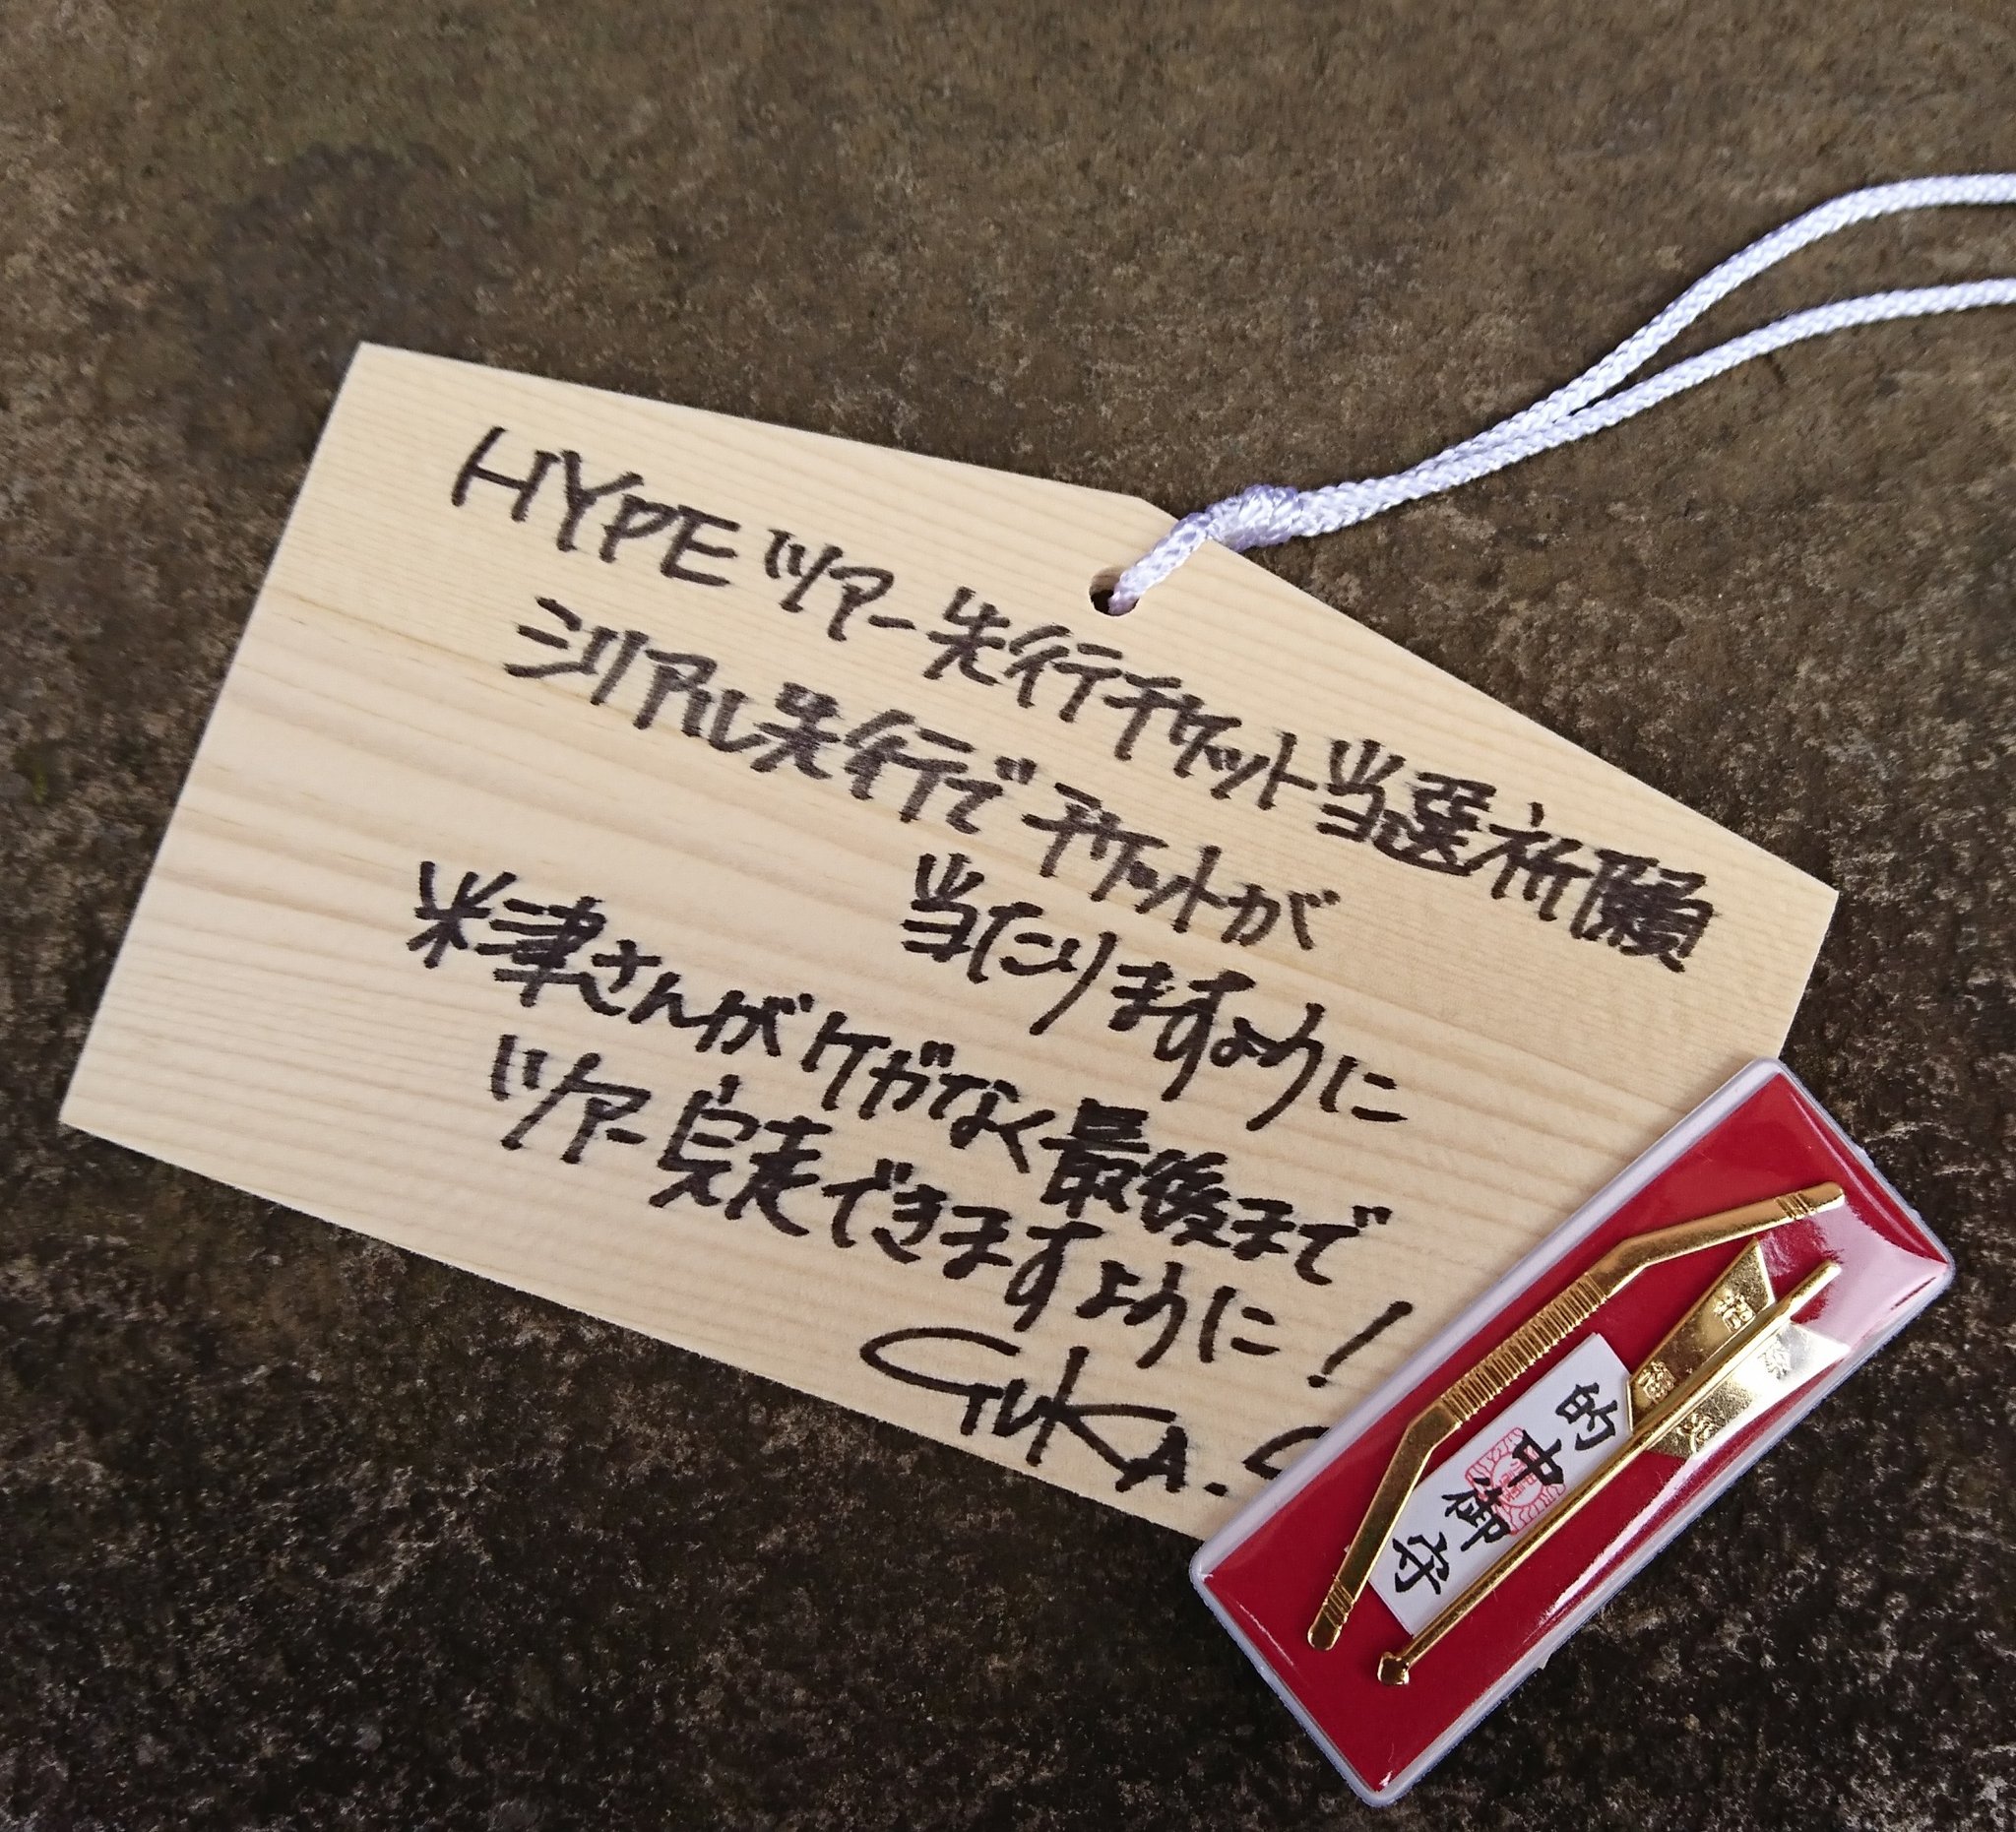 HYPEツアー先行チケット当選祈願
シリアル先行でチケットが
当たりますように
米津さんがケガなく最後まで
ツアー完走できますように!
GUKA.
的中御守